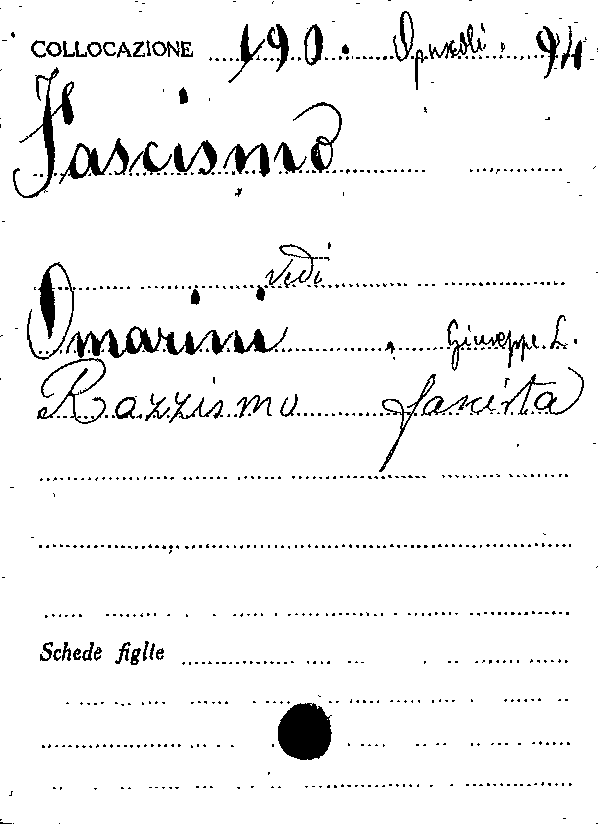 COLLOCAZIONE 190. Opuscoli. 94
Fascismo
vedi
Omarini, Giuseppe L.
Razzismo fascista
Schede figlie